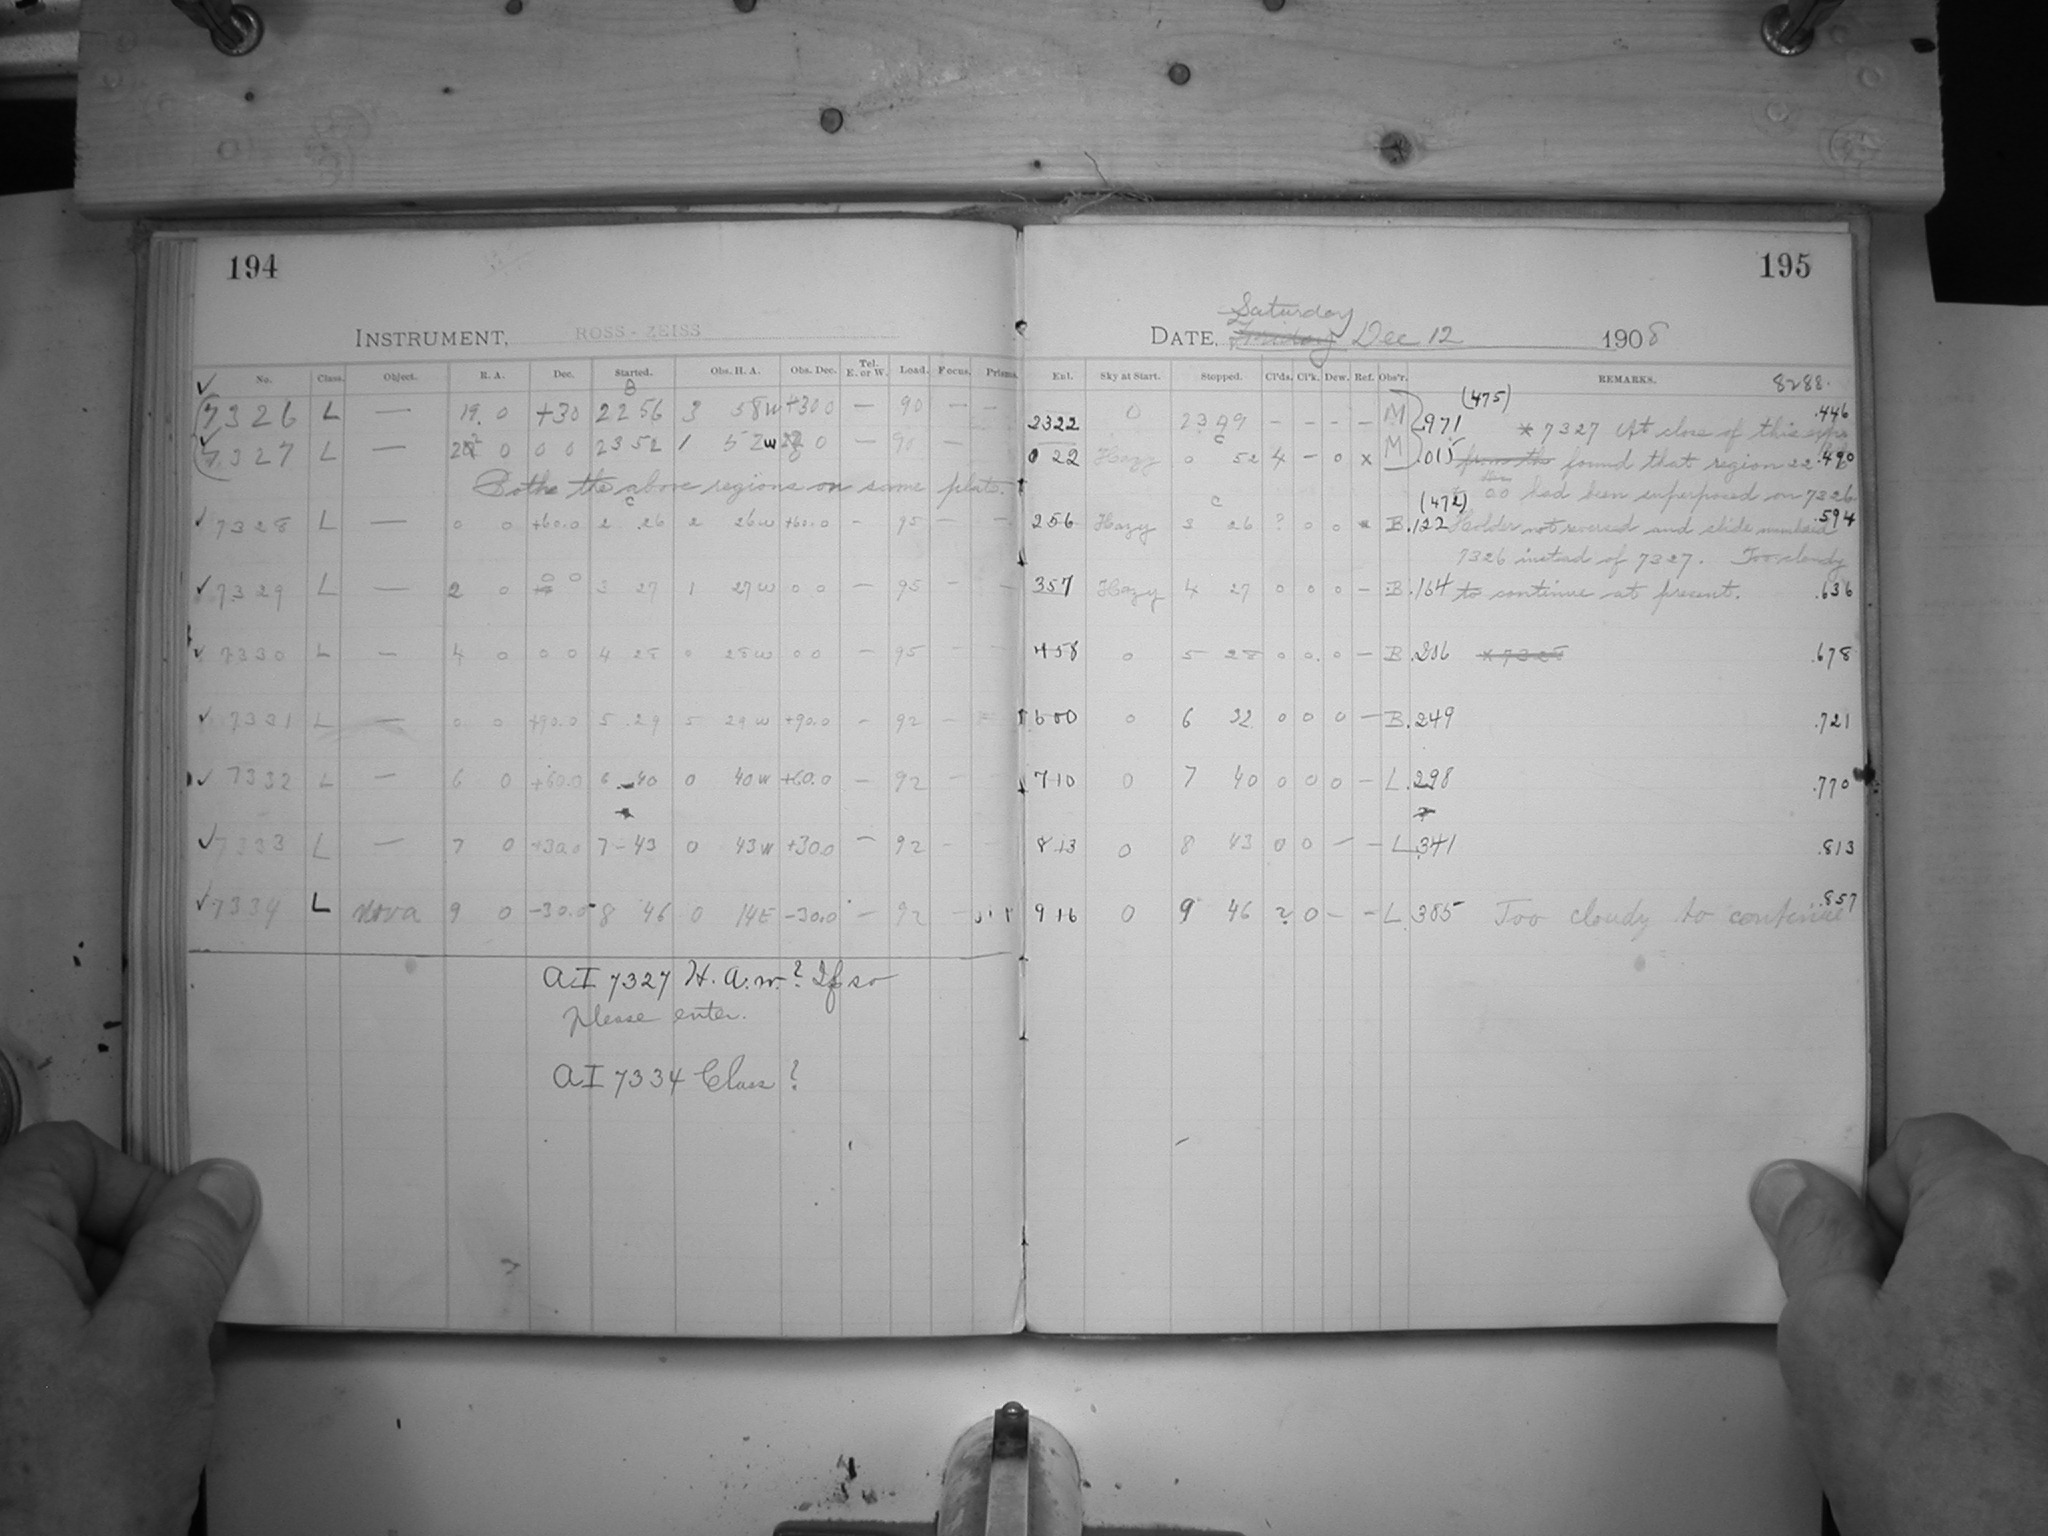 194
195
INSTRUMENT, ROSS-ZEISS
Saturday
DATE, Friday Dec 12 1908
No. Class. Object. R. A. Dec. Started. Obs. H. A. Obs. Dec. Tel. E. or W. Load. Focus. Prisms.
Ent. Sky at Start. Stopped. Cl'ds. Cl'k. Dew. Ref. Obs'r. REMARKS. 8288.
7326 L — 19 0 +30 22 56 3 58W +30 0 — 90 — —
2322 0 - - - - M .971 (475) .446
* 7327 At close of this
7327 L — 0 0 0 23 52 1 52W 0 — 90 —
0 22 Hazy 0 52 4 — 0 x M .015 found that region 22 .490
Both the above regions on same plate.
00 had been superposed on 7326
7328 L — 0 0 +60.0 2 26 2 26W +60.0 - 95 - -
256 Hazy 3 26 ? 0 0 B .122 (472) Holder not reversed and slide numbered .594
7326 instead of 7327. Too cloudy
7329 L — 2 0 0 0 3 27 1 27W 0 0 — 95 - -
357 Hazy 4 27 0 0 0 — B .164 to continue at present. .636
7330 L — 4 0 0 0 4 28 0 28W 0 0 — 95 -
458 0 5 28 0 0 0 — B .206 * 7328 .678
7331 L — 0 0 +90.0 5 29 5 29W +90.0 - 92 -
600 0 6 32 0 0 0 — B .249 .721
7332 L — 6 0 +60.0 6 40 0 40W +60.0 — 92 -
710 0 7 40 0 0 0 — L .298 .770
7333 L — 7 0 +30.0 7 43 0 43W +30.0 — 92 - -
813 0 8 43 0 0 — — L .341 .813
7334 L Nova 9 0 -30.0 8 46 0 14E -30.0 — 92 -
916 0 9 46 ? 0 - - L .385 Too cloudy to continue .857
AI 7327 H. A. w.? If so
please enter.
AI 7334 Class?